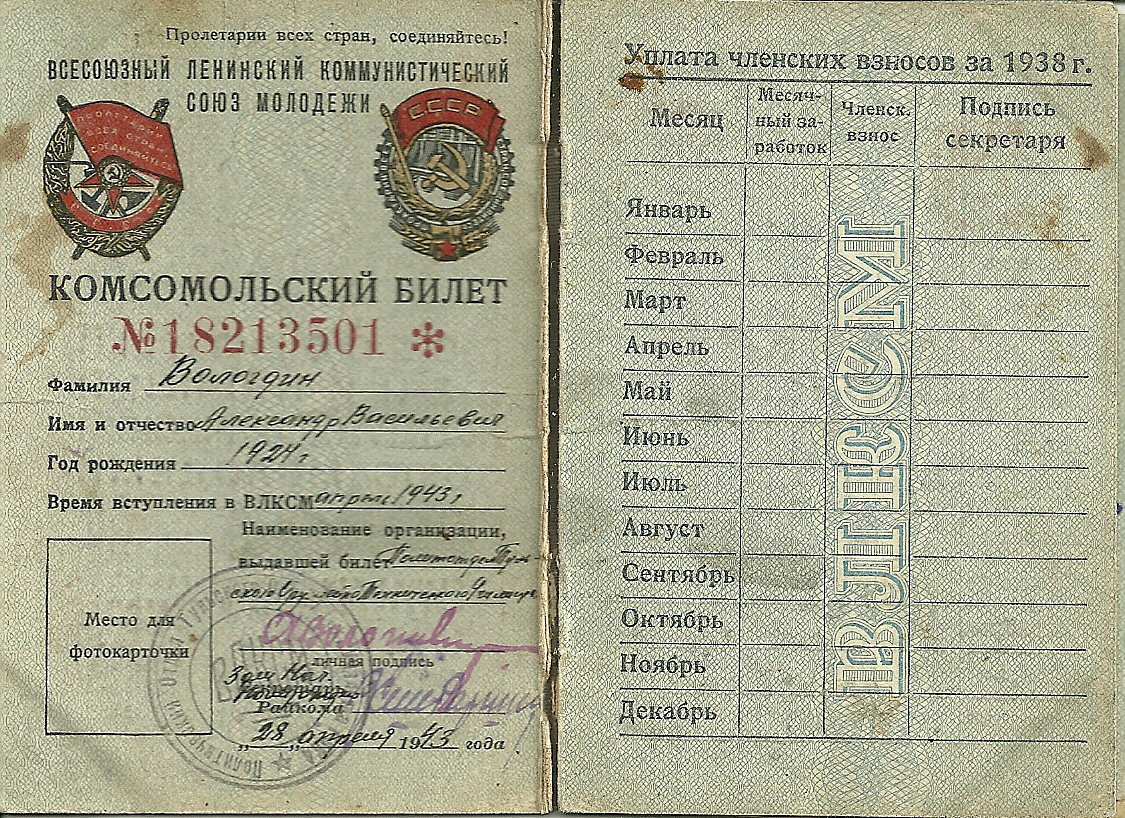 Пролетарии всех стран, соединяйтесь!
ВСЕСОЮЗНЫЙ ЛЕНИНСКИЙ КОММУНИСТИЧЕСКИЙ
СОЮЗ МОЛОДЕЖИ
ПРОЛЕТАРИИ
ВСЕХ СТРАН
СОЕДИНЯЙТЕСЬ
СССР
СССР
КОМСОМОЛЬСКИЙ БИЛЕТ
№18213501 *
Фамилия Вологдин
Имя и отчество Александр Васильевич
Год рождения 1924 г
Время вступления в ВЛКСМ апрель 1943 г
Наименование организации,
выдавшей билет Политотдел Туль
ского Оружейно Технического Училища
личная подпись
Зам Нач.
Райкома
„28„ апреля 1943 года
Место для
фотокарточки
Уплата членских взносов за 1938 г.
Месяц
Месяч-
ный за-
работок
Членск.
взнос
Подпись
секретаря
Январь
Февраль
Март
Апрель
Май
Июнь
Июль
Август
Сентябрь
Октябрь
Ноябрь
Декабрь
ВЛКСМ